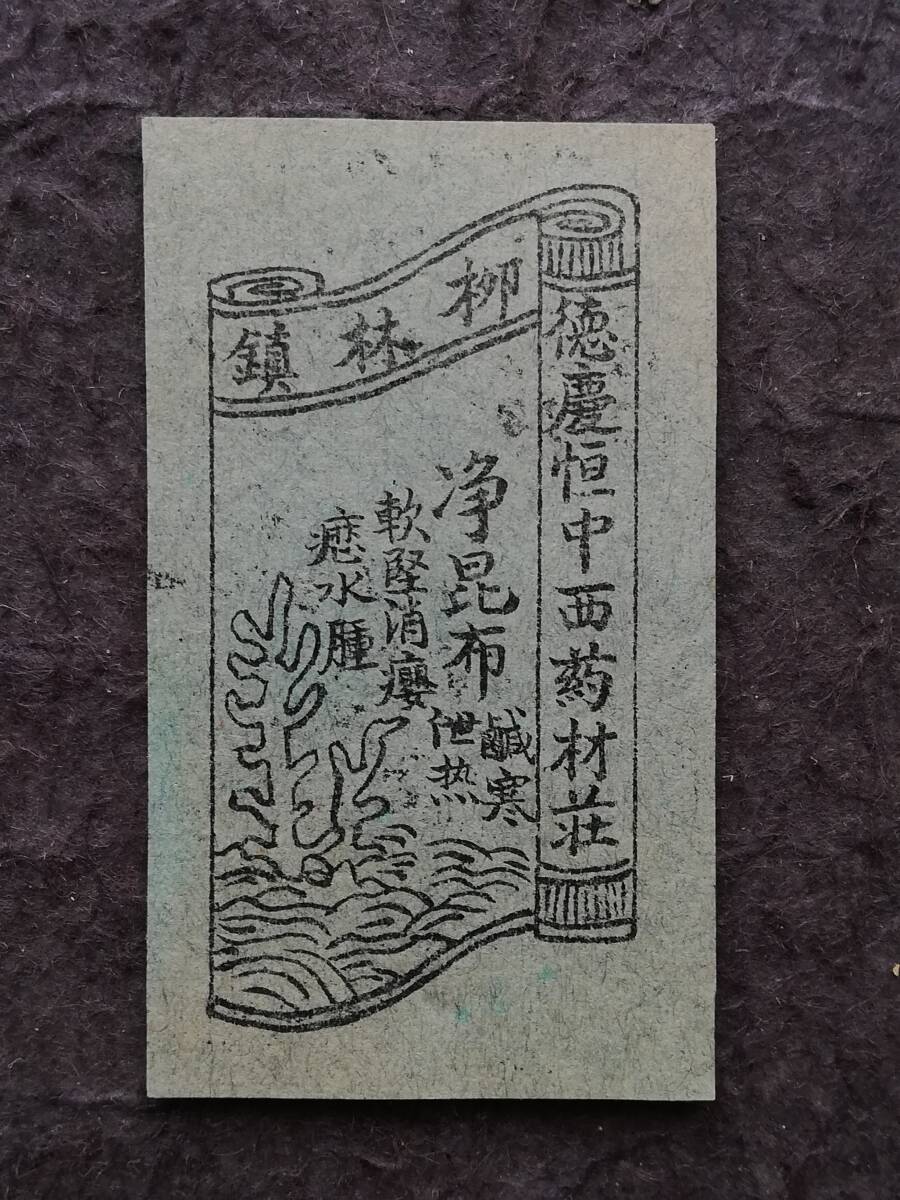 柳林鎮
德慶恒中西药材莊
净昆布
鹹寒
泄热
軟堅消癭
瘱水腫